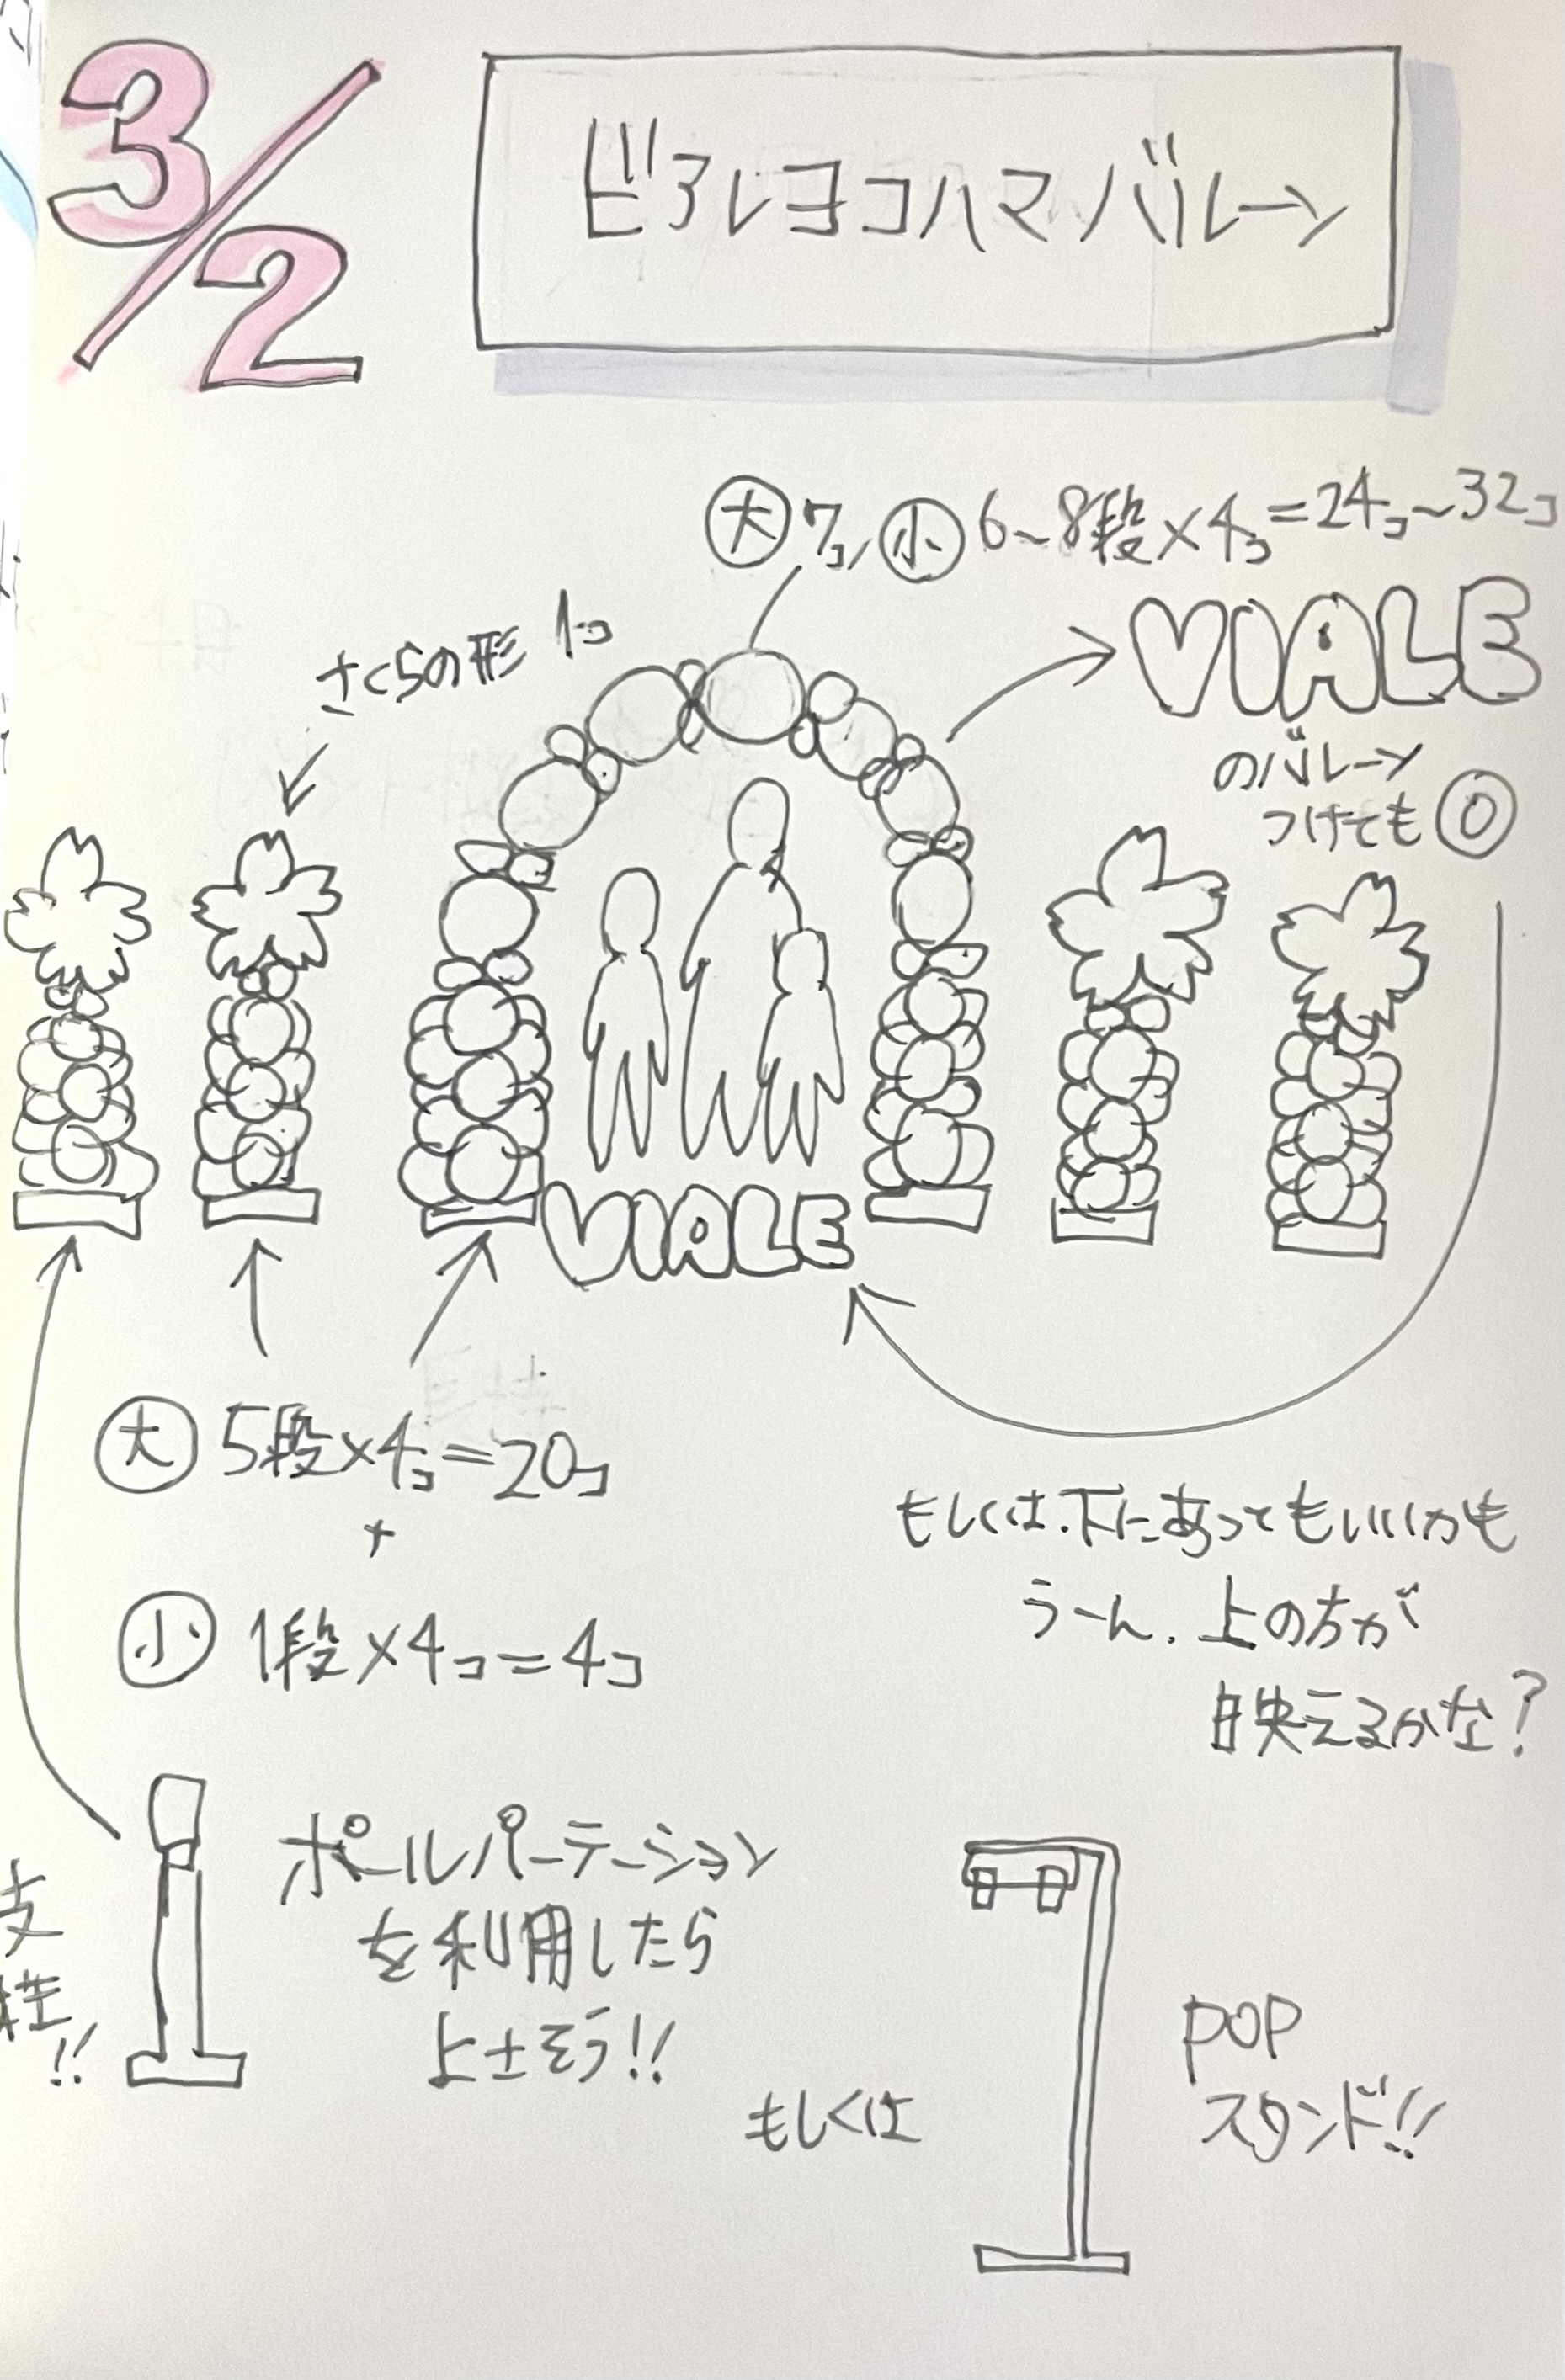 3/2
ビアレヨコハマバルーン
大 7コ, 小 6~8段×4コ=24コ~32コ
さくらの形 1コ
VIALE
のバルーン
つけても◎
VIALE
大 5段×4コ=20コ
+
小 1段×4コ=4コ
もしくは.下にあってもいいかも
うーん.上の方が
映えるかな?
支柱!!
ポールパーテーション
を利用したら
よさそう!!
もしくは
POP
スタンド!!